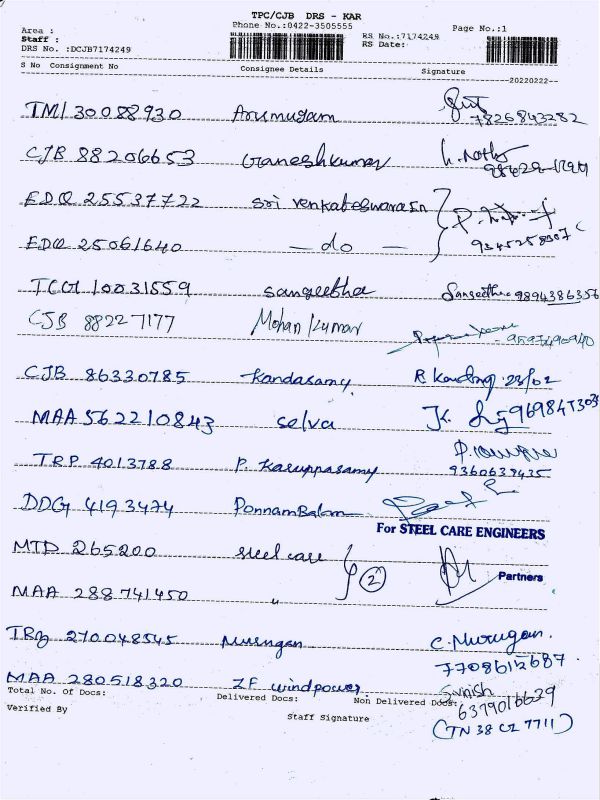 TPC/CJB DRS - KAR
Phone No.:0422-3505555
Page No.:1
Area :
Staff :
DRS No. :DCJB7174249
RS No.:7174249
RS Date:
S No Consignment No Consignee Details Signature
20220222
TMI 30088930 Arumugam
7826843282
CJB 88206653 Ganeshkumar
EDQ 25537722 Sri Venkateswara
EDQ 25061640 — do —
TCG 10031559 Sangeetha Sangeetha 9894386356
CJB 88227177 Mohan Kumar
CJB 86330785 Kandasamy 23/02
MAA 562210843 Selva
TRP 4013788 P. Karuppasamy
9360639435
DDG 4193474 PonnamBalam
For STEEL CARE ENGINEERS
MTD 265200 Steel care 2
Partners
MAA 288741450 "
270048545 Murugan C. Murugan.
7708612687
MAA 280518320 ZF windpower.
6379016629
(TN 38 CZ 7711)
Total No. of Docs: Delivered Docs: Non Delivered Docs:
Verified By
Staff Signature